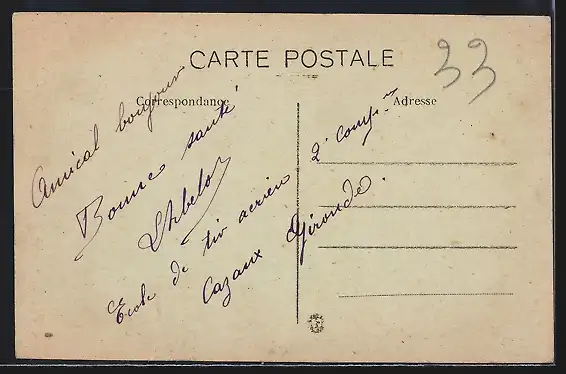 CARTE POSTALE
33
Correspondance
Adresse
Amical bonjour
Bonne santé
Ecole de tir aerien 2e Compnie
Cazaux Gironde.